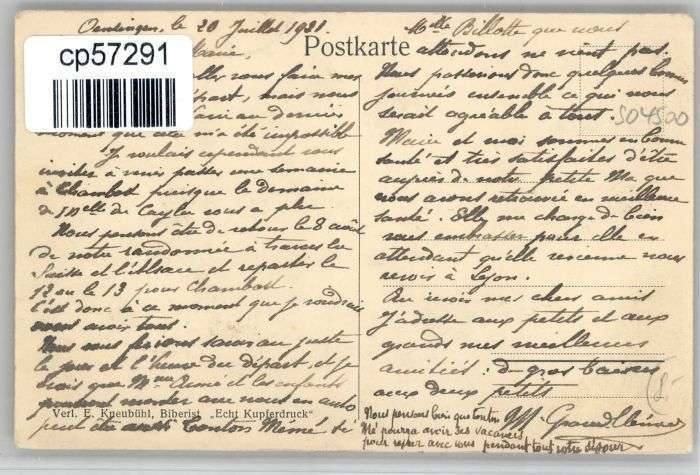 Oendingen, le 20 Juillet 1931.
Postkarte
cp57291
Marie,
aller vous faire mes
départ, mais nous
au dernier
moment que cela m'a été impossible
Je voulais cependant vous
inviter à venir passer une semaine
à Chambost puisque le domaine
de Melle de Cayla vous a plu
Nous pensons être de retour le 8 août
de notre randonnée à travers la
Suisse et l'Alsace et repartir le
12 ou le 13 pour Chambost.
C'est donc à ce moment que je voudrais
vous avoir tous.
Nous vous ferions savoir au juste
le jour et l'heure du départ, et je
crois que Mme Aimé et les enfants
pourront monter avec nous en auto
peut être avec Tonton Mémé si
Verl. E. Kneubühl, Biberist „Echt Kupferdruck"
Melle Billotte que nous
attendons ne vient pas.
Nous passerions donc quelques bonnes
journées ensemble ce qui nous
serait agréable à tous.
504500
Marie et moi sommes en bonne
santé et très satisfaites d'être
auprès de notre petite Ma que
nous avons retrouvée en meilleure
santé. Elle me charge de bien
vous embrasser pour elle en
attendant qu'elle revienne nous
revoir à Lyon.
Au revoir mes chers amis
J'adresse aux petits et aux
grands mes meilleures
amitiés: de gros baisers
aux deux petits
Nous pensons bien que tonton
Mé pourra avoir des vacances
pour rester avec vous pendant tout votre séjour